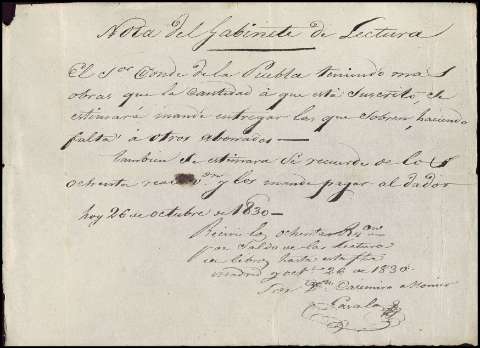 Nota del Gabinete de Lectura
El S.or Conde de la Puebla teniendo mas
obras que la Cantidad á que está Suscrito, se
estimará mande entregar las que Sobren, haciendo
falta á otros Abonados—
Tambien se estimara se recuerde de los
ochenta reales v.on y los mande pagar al dador
hoy 26 de octubre de 1830—
Recivi los ochenta R.s v.on
por Saldo de las lectura
de libros hasta esta fha
Madrid y oct.e 26 de 1830
Casimiro Monier
Zavala